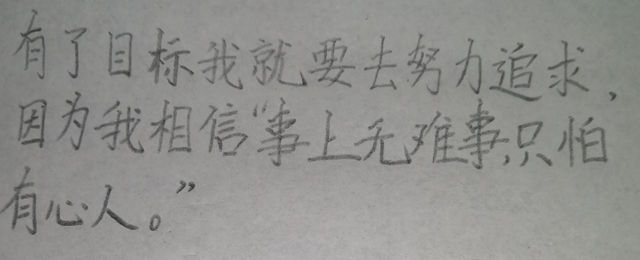 有了目标我就要去努力追求，
因为我相信“事上无难事，只怕
有心人。”